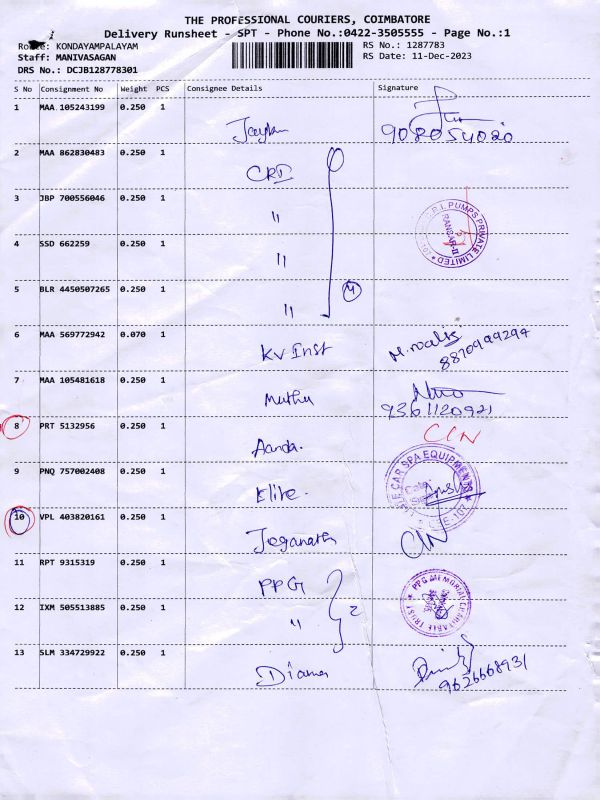 THE PROFESSIONAL COURIERS, COIMBATORE
Delivery Runsheet - SPT - Phone No.:0422-3505555 - Page No.:1
Route: KONDAYAMPALAYAM
RS No.: 1287783
Staff: MANIVASAGAN
RS Date: 11-Dec-2023
DRS No.: DCJB128778301
S No Consignment No Weight PCS Consignee Details Signature
1 MAA 105243199 0.250 1
908054020
2 MAA 862830483 0.250 1
CRI
3 JBP 700556046 0.250 1
"
4 SSD 662259 0.250 1
"
PUMPS PRIVATE LIMITED
5 BLR 4450507265 0.250 1
" 4
6 MAA 569772942 0.070 1
KV Inst
8870999294
7 MAA 105481618 0.250 1
Muthu
9361120921
8 PRT 5132956 0.250 1
Aanda. CIN
9 PNQ 757002408 0.250 1
Elite.
CAR SPA EQUIPMENTS
10 VPL 403820161 0.250 1
Joganath CIN
11 RPT 9315319 0.250 1
PPG
12 IXM 505513885 0.250 1
" 2
PPG MEMORIAL CHARITABLE TRUST
13 SLM 334729922 0.250 1
9626668931